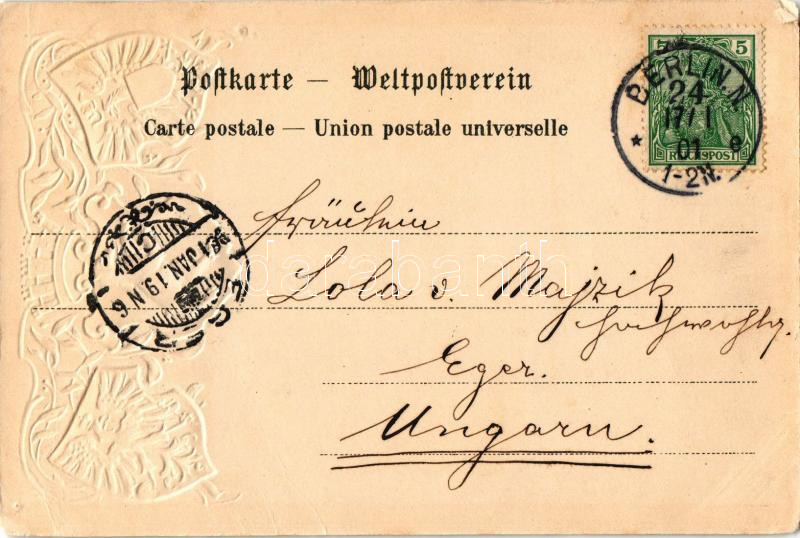 Postkarte — Weltpostverein
Carte postale — Union postale universelle
5 5
REICHSPOST
BERLIN.N
24
17/1
01
1-2N.
*
Fräulein
Lola v. Majzik
Hochwohlg.
Eger.
Ungarn.
EGER
JAN 19 N 6
darabanth